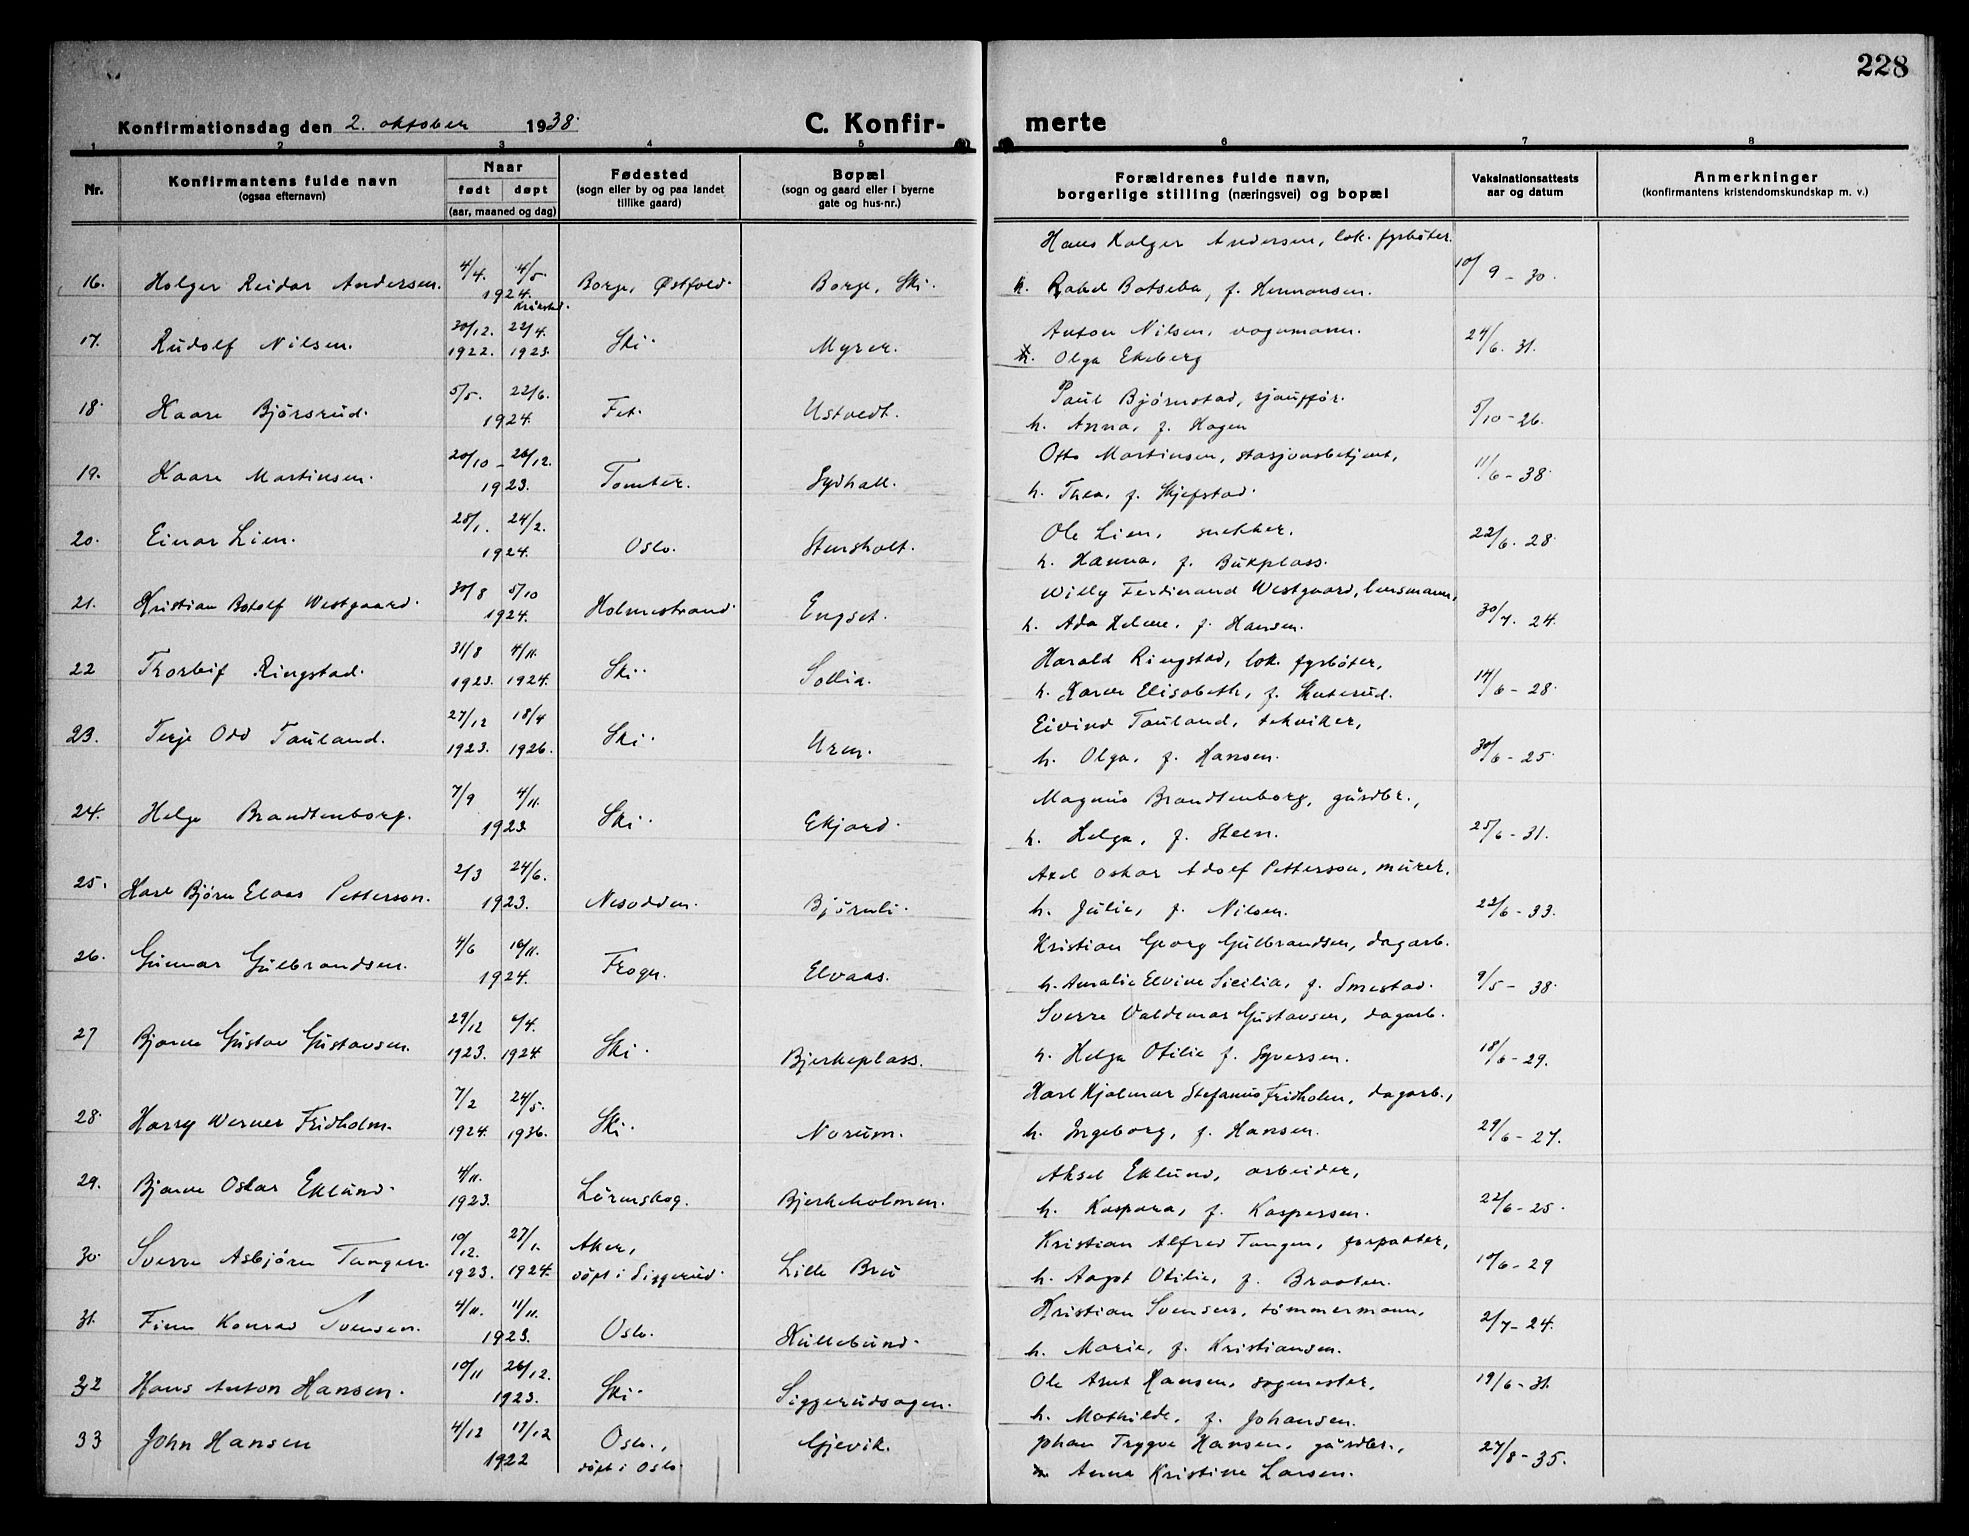 228
Konfirmationsdag den 2. oktober 1938.
C. Konfir-
merte
1 2 3 4 5 6 7 8
Nr.
Konfirmantens fulde navn
(ogsaa efternavn)
Naar
født døpt
(aar, maaned og dag)
Fødested
(sogn eller by og paa landet
tillike gaard)
Bopæl
(sogn og gaard eller i byerne
gate og hus-nr.)
Forældrenes fulde navn,
borgerlige stilling (næringsvei) og bopæl
Vaksinationsattests
aar og datum
Anmerkninger
(konfirmantens kristendomskundskap m. v.)
Hans Holger Andersen, lok. fyrbøter.
16. Holger Reidar Andersen. 4/4. 4/5. 1924. Borge, Østfold. Borge, Ski. h. Rakel Batseba, f. Hermansen. 10/9 - 30.
Kråkstad.
17. Rudolf Nilsen. 30/12. 1922. 22/4. 1923. Ski. Myrer. Anton Nilsen, vognmann. 24/6. 31.
h. Olga Ekeberg
18. Kaare Bjørsrud. 5/5. 22/6. 1924. Fet. Ustvedt. Paul Bjørnstad, sjauffør. 5/10 - 26.
h. Anna, f. Hagen
19. Kaare Martinsen. 20/10 - 26/12. 1923. Tomter. Sydhall. Otto Martinsen, stasjonsbetjent, 11/6 - 38.
h. Thea, f. Skjefstad.
20. Einar Lien. 28/1. 24/2. 1924. Oslo. Stensholt. Ole Lien, snekker. 22/6. 28.
h. Hanna, f. Bukplass.
21. Kristian Botolf Westgaard. 30/8 5/10 1924. Holmestrand. Engset. Willy Ferdinand Westgaard, lensmann, 30/7. 24.
h. Ada Helene, f. Hansen.
22 Thorleif Ringstad. 31/8 1923. 4/11. 1924. Ski. Sollia. Harald Ringstad, lok. fyrbøter, 14/6 - 28.
h. Karen Elisabeth, f. Skuterud.
23. Terje Odd Tauland. 27/12 1923. 18/4 1926. Ski. Uren. Eivind Tauland, tekniker, 30/6 - 25.
h. Olga, f. Hansen.
24. Helge Brandtenborg. 7/9 4/11. 1923 Ski. Ekjord. Magnus Brandtenborg, gårdbr., 25/6 - 31.
h. Helga, f. Steen.
25. Karl Bjørn Elaas Petterson. 2/3 24/6. 1923. Nesodden. Bjørnli. Axel Oskar Adolf Petterson, murer, 22/6 - 33.
h. Julie, f. Nilsen.
26. Gunnar Gulbrandsen. 4/6 16/11. 1924. Frogn. Elvaas. Kristian Georg Gulbrandsen, dagarb. 9/5 - 38.
h. Amalie Elvine Sicilia, f. Smestad.
27 Bjarne Gustav Gustavsen. 29/12 1923. 6/4. 1924 Ski. Bjerkeplass. Sverre Valdemar Gustavsen, dagarb. 18/6 - 29.
h. Helga Otilie f. Syversen.
28. Harry Werner Fridholm. 7/2 1924. 24/5. 1936. Ski. Norum. Karl Hjalmar Stefanus Fridholm, dagarb., 29/6 - 27.
h. Ingeborg, f. Hansen.
29. Bjarne Oskar Eklund. 4/11. 1923. Lørenskog. Bjerkeholmen. Aksel Eklund, arbeider, 22/6 - 25.
h. Kaspara, f. Kaspersen.
30. Sverre Asbjørn Tangen. 10/12. 1923. 27/1. 1924. Aker, døpt i Siggerud. Lille Bru Kristian Alfred Tangen, forpakter, 10/6 - 29
h. Aagot Otilie, f. Braaten.
31. Finn Konrad Svensen. 4/11. 11/11. 1923. Oslo. Kullebund. Kristian Svensen, tømmermann, 2/7 - 24.
h. Marie, f. Kristiansen.
32 Hans Anton Hansen. 10/11 26/12. 1923. Ski. Siggerudsagen. Ole Amt Hansen, sagmester, 19/6 - 31.
h. Mathilde, f. Johansen.
33 John Hansen 4/12 17/12 1922 Oslo, døpt i Oslo. Gjevik. Johan Trygve Hansen, gårdbr., 27/8 - 35.
Anna Kristine Larsen.